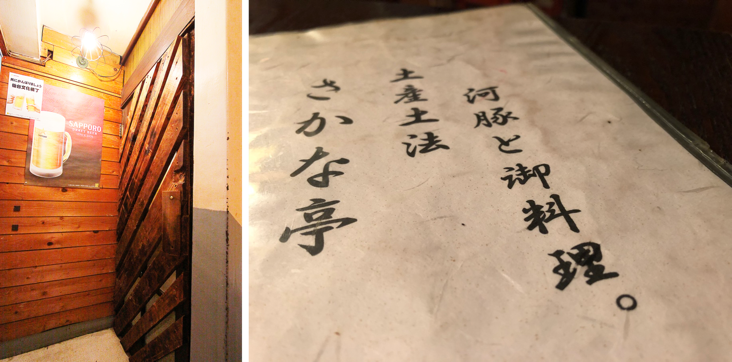 SAPPORO
河豚と御料理。
土産土法
さかな亭